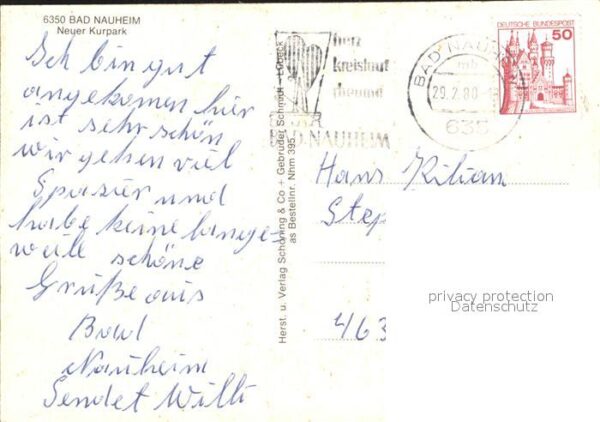 6350 BAD NAUHEIM
Neuer Kurpark
Ich bin gut
angekomen hier
ist sehr schön
wir gehen viel
Spazier und
habe keine lange-
weile schöne
Grüße aus
Bad
Nauheim
Sendet Willi
Herst. u. Verlag Schöning & Co + Gebrüder Schmidt - Lübeck
as Bestellnr. Nhm 395
herz
kreislauf
rheuma
BAD NAUHEIM
BAD NAUHEIM
mb
29.2.80
635
DEUTSCHE BUNDESPOST
50
Hans Kilian
Step
463
privacy protection
Datenschutz